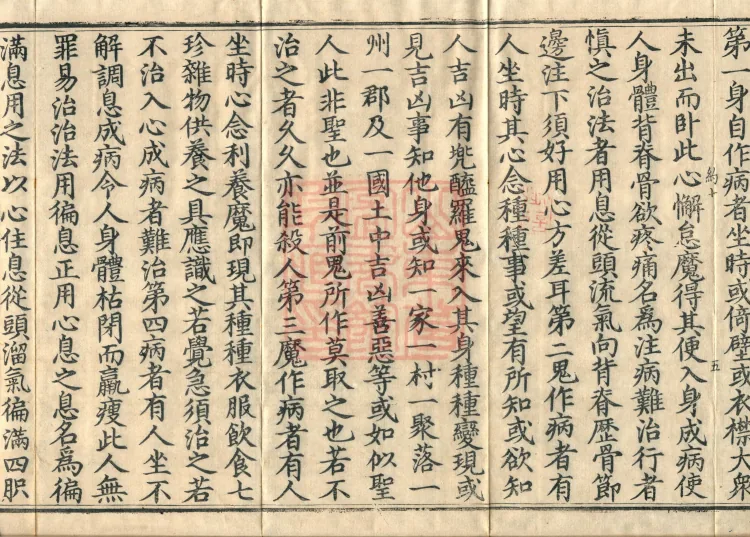 第一身自作病者坐時或倚壁或衣襟大衆
未出而卧此心懈怠魔得其便入身成病便
人身體背脊骨欲疼痛名爲注病難治行者
慎之治法者用息從頭流氣向背脊歷骨節
邊注下須好用心方差耳第二鬼作病者有
人坐時其心念種種事或望有所知或欲知
人吉凶有兠醯羅鬼來入其身種種變現或
見吉凶事知他身或知一家一村一聚落一
州一郡及一國土中吉凶善惡等或如似聖
人此非聖也並是前鬼所作莫取之也若不
治之者久久亦能殺人第三魔作病者有人
坐時心念利養魔即現其種種衣服飲食七
珍雜物供養之具應識之若覺急須治之若
不治入心成病者難治第四病者有人坐不
解調息成病令人身體枯閉而羸瘦此人無
罪易治治法用徧息正用心息之息名爲徧
滿息用之法以心住息從頭溜氣徧滿四肢
五